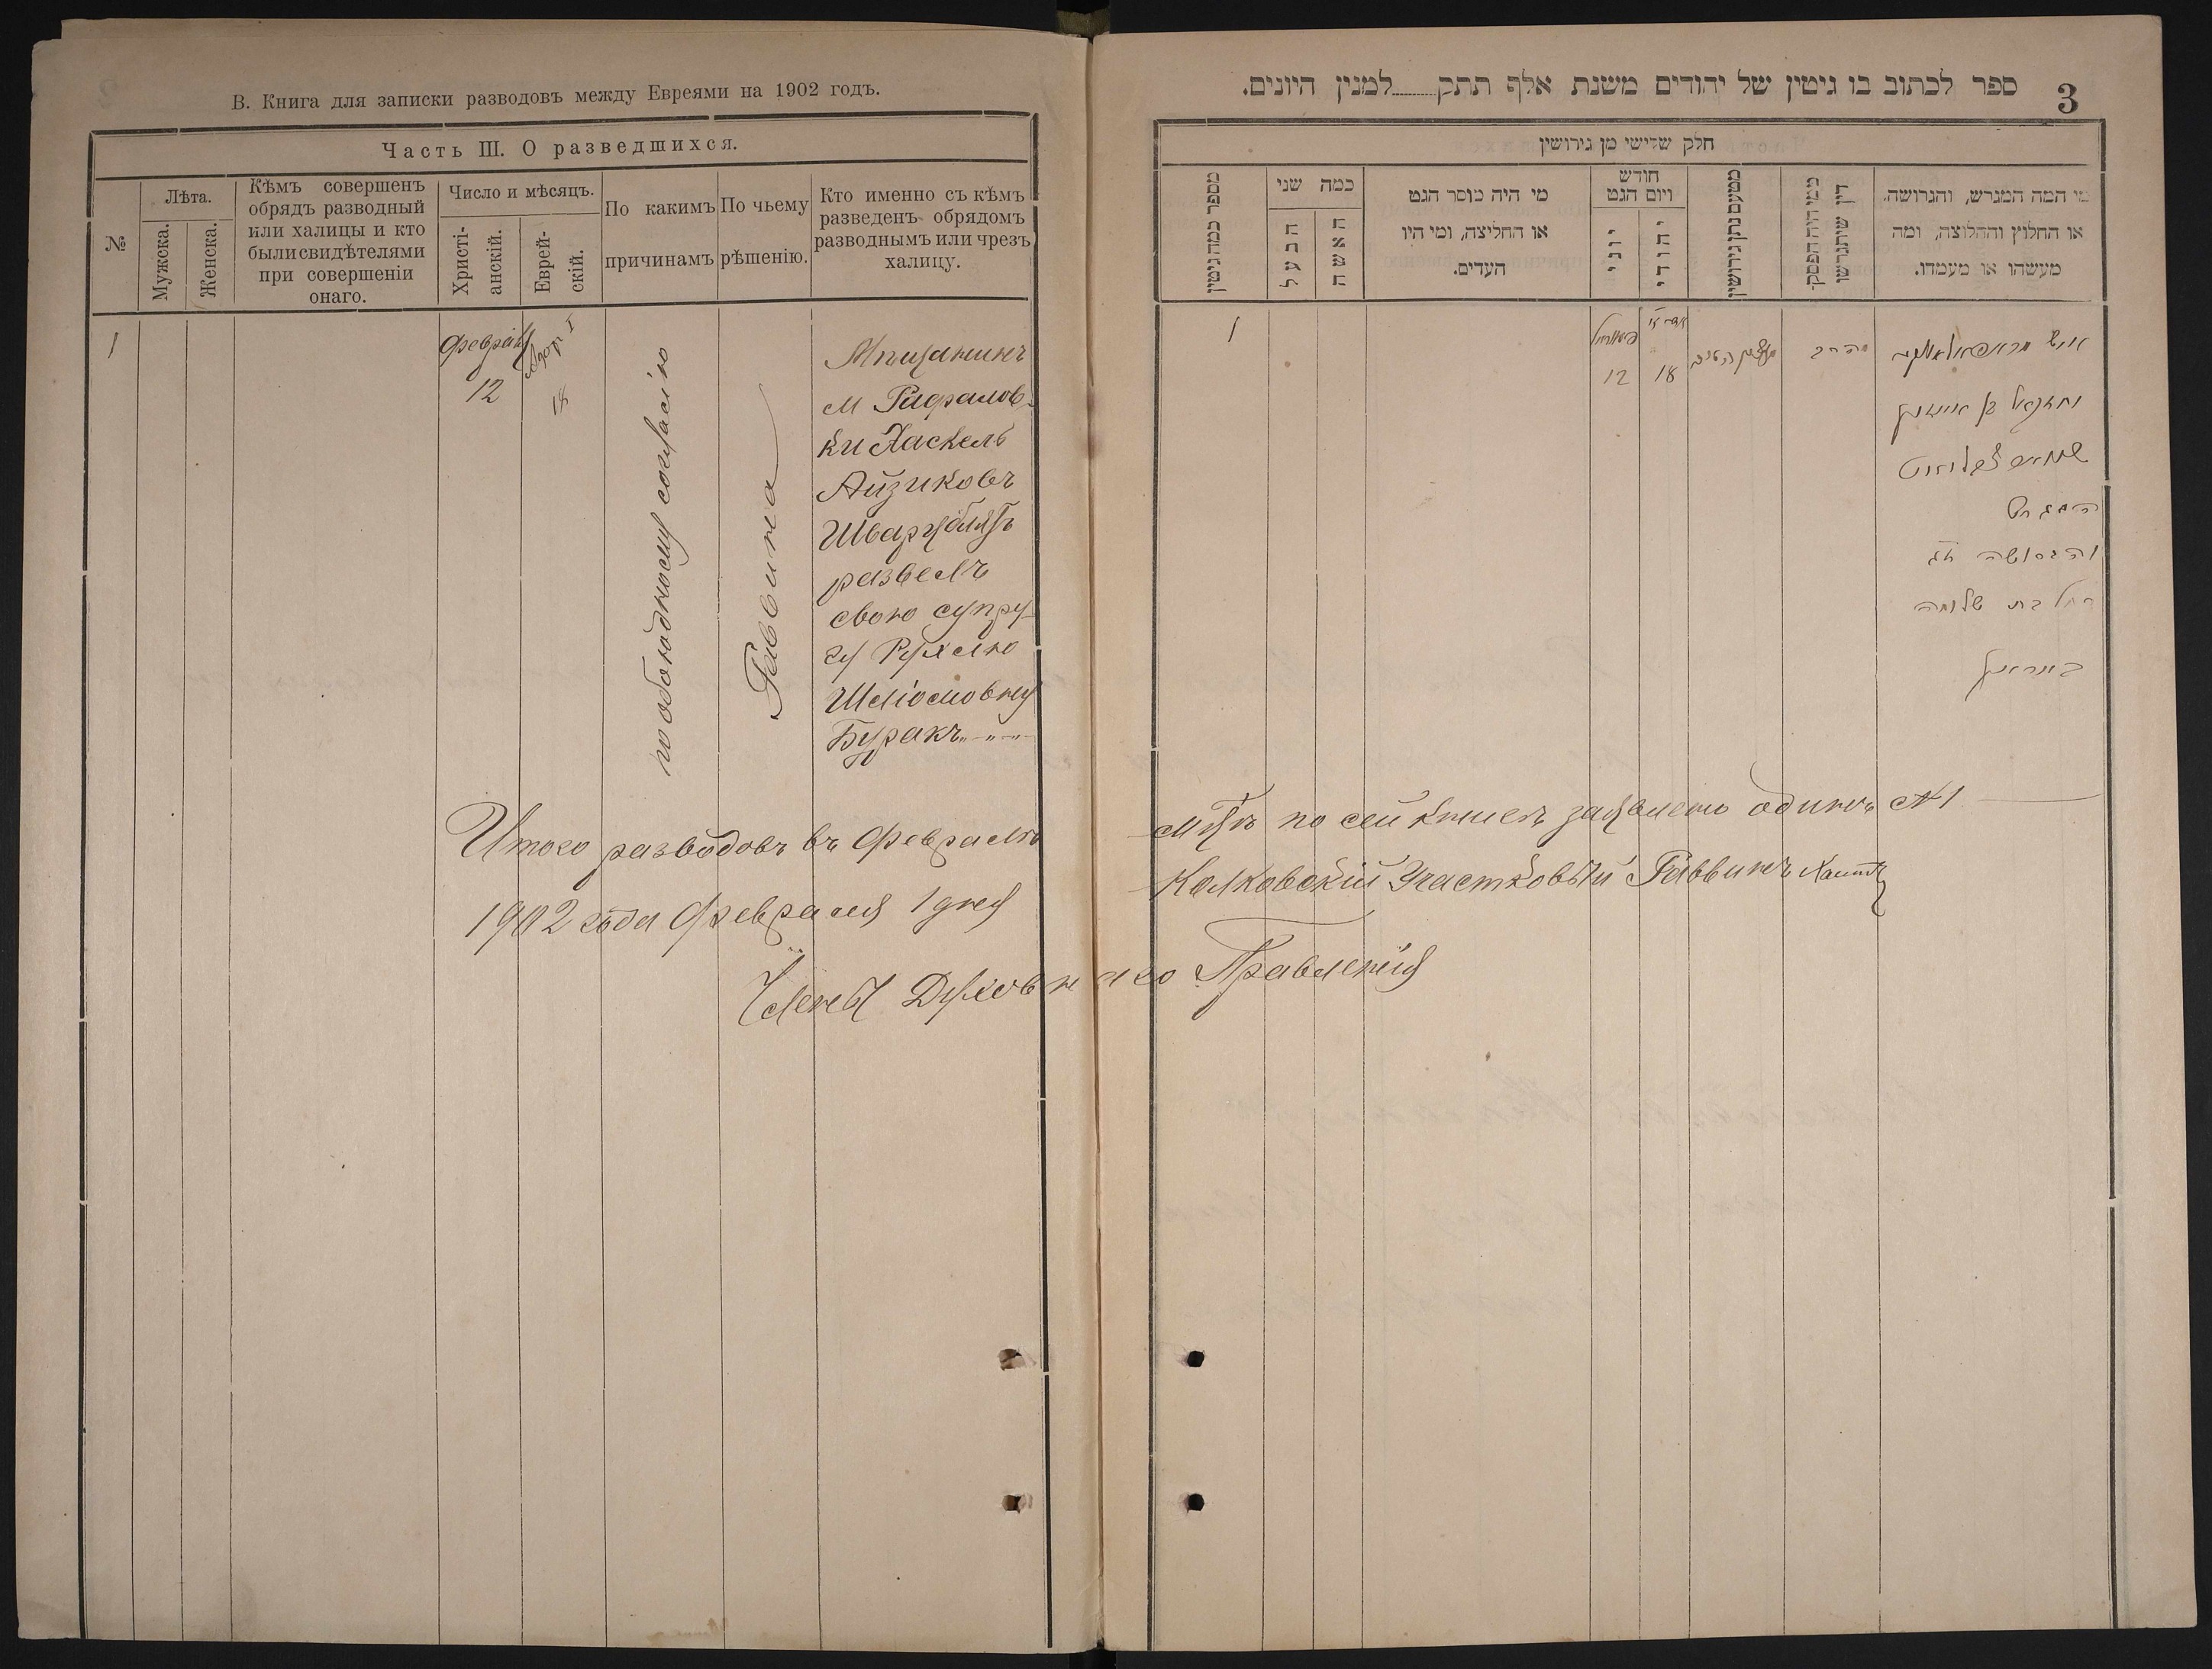 В. Книга для записки разводовъ между Евреями на 1902 годъ.
Часть III. О разведшихся.
№
Лѣта.
Мужска.
Женска.
Кѣмъ совершенъ
обрядъ разводный
или халицы и кто
были свидѣтелями
при совершеніи
онаго.
Число и мѣсяцъ.
Христі-
анскій.
Еврей-
скій.
По какимъ
причинамъ
По чьему
рѣшенію.
Кто именно съ кѣмъ
разведенъ обрядомъ
разводнымъ или чрезъ
халицу.
1
Февраля
12
Адоръ I
18
по обоюдному согласію
Раввина
Мѣщанинъ
м Рафалов-
ки Хаскель
Айзиковъ
Шварцблатъ
развелъ
свою супру-
гу Рухлю
Шліомовну
Буракъ
3
ספר לכתוב בו גיטין של יהודים משנת אלף תתק למנין היונים.
חלק שלישי מן גירושין
מספר כמה גיטין
כמה שני
הבעל
האשה
מי היה מוסר הגט
או החליצה, ומי היו
העדים.
חודש
ויום הגט
יוני
יהודי
מטעם נתן גירושין
מי היה הפסק
דין שיתגרשו
מי המה המגרש, והגרושה,
או החלוץ והחלוצה, ומה
מעשהו או מעמדו.
1
12
18
הרב
יחזקאל בן אייזיק
המגרש
והגרושה
רחל בת שלומה
Итого разводовъ въ Февралѣ мѣсяцѣ по сей книгѣ одинъ №1
1902 года Февраля 1 дня Колковскій Участковый Раввинъ
Члены Духовнаго Правленія